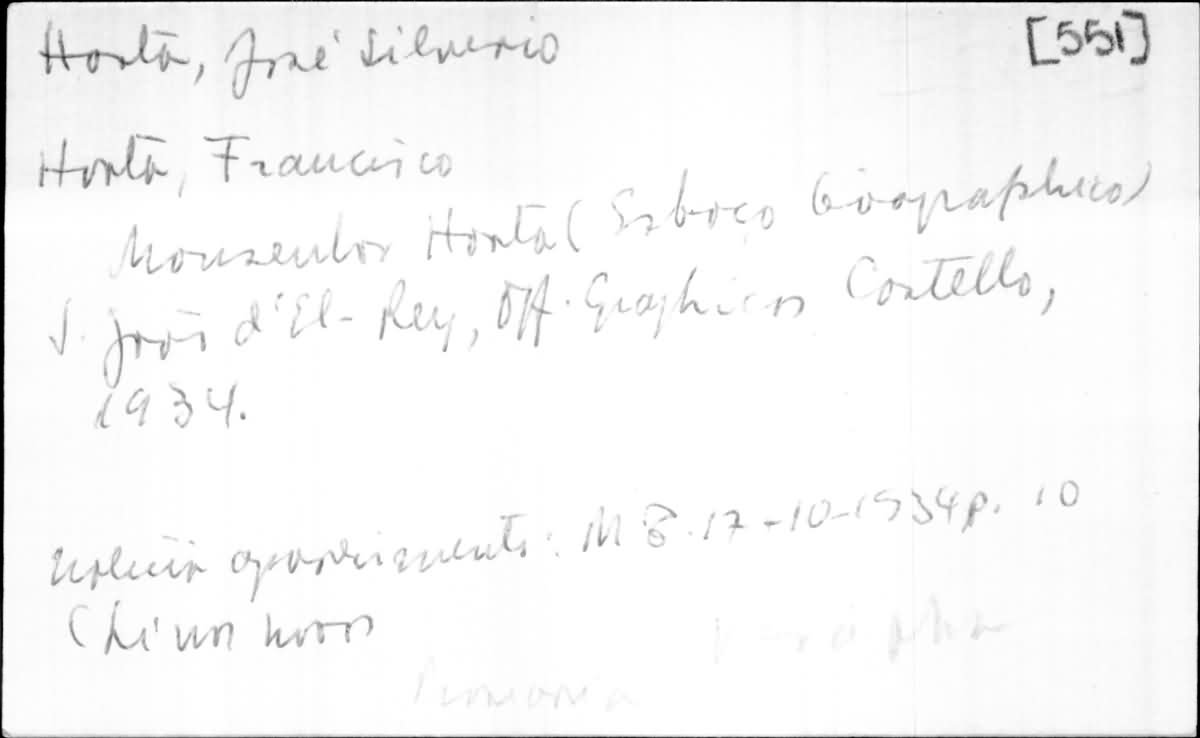 Horta, José Silverio [551]
Horta, Francisco
Monsenhor Horta (Esboço biographico)
S. João d'El-Rey, Off. Graphicas Castello,
1934.
Noticia aparecimento: M G. 17-10-1934 p. 10
(Livros novos